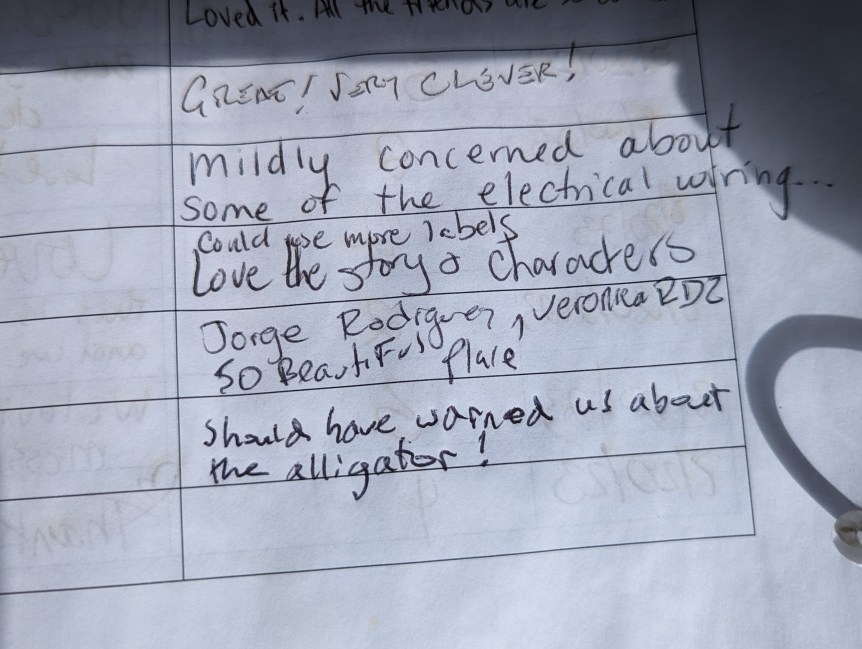 Loved it. All the friends are so
GREAT! VERY CLEVER!
Mildly concerned about
some of the electrical wiring...
Could use more labels
Love the story & characters
Jorge Rodriguez, Veronica RDZ
SO BeautiFul Place
Should have warned us about
the alligator!
2/20/23